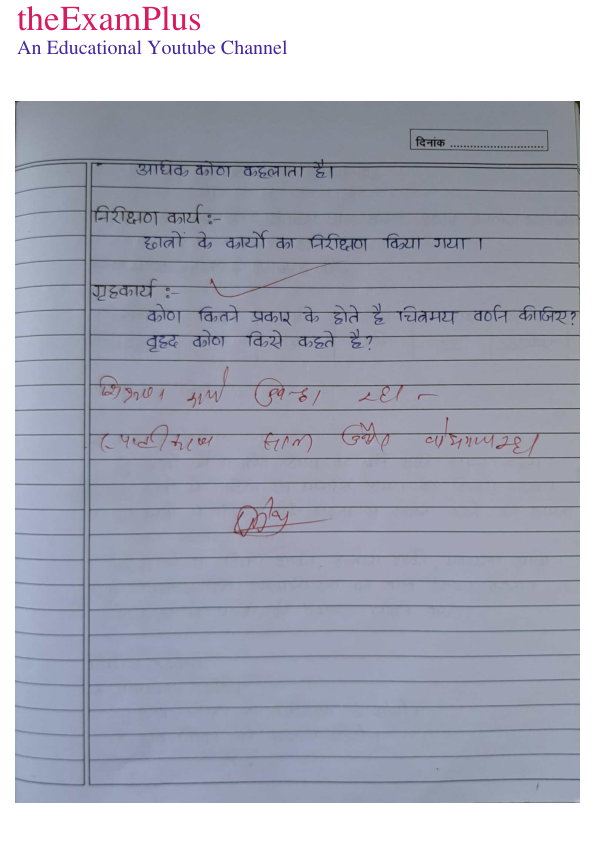 theExamPlus
An Educational Youtube Channel
दिनांक ............................
आधिक कोण कहलाता है।
निरीक्षण कार्य :-
छात्रों के कार्यो का निरिक्षण किया गया ।
गृहकार्य :-
कोण कितने प्रकार के होते है चित्रमय वर्णन कीजिए?
वृहद कोण किसे कहते है?
शिक्षण कार्य अच्छा रहा -
स्पष्टीकरण सरल और